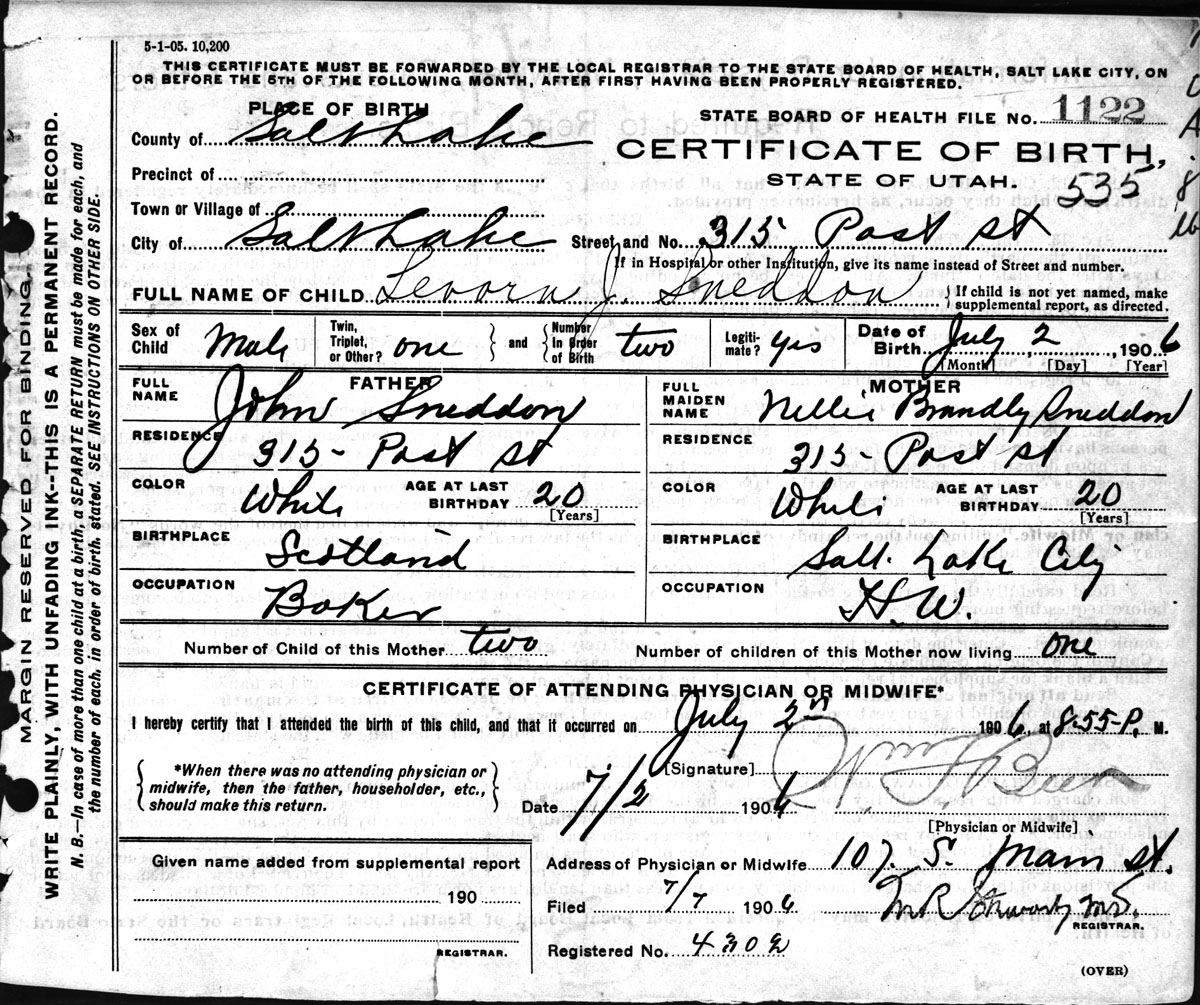 5-1-05. 10,200
THIS CERTIFICATE MUST BE FORWARDED BY THE LOCAL REGISTRAR TO THE STATE BOARD OF HEALTH, SALT LAKE CITY, ON
OR BEFORE THE 5TH OF THE FOLLOWING MONTH, AFTER FIRST HAVING BEEN PROPERLY REGISTERED.
PLACE OF BIRTH
STATE BOARD OF HEALTH FILE No. 1122
County of Salt Lake
CERTIFICATE OF BIRTH,
Precinct of
STATE OF UTAH. 535
Town or Village of
City of Salt Lake Street and No. 315 Post st
If in Hospital or other Institution, give its name instead of Street and number.
FULL NAME OF CHILD J. Sneddon
If child is not yet named, make
supplemental report, as directed.
Sex of Child Male
Twin, Triplet, or Other? one and Number In Order of Birth two
Legitimate? yes
Date of Birth July 2, 1906
[Month] [Day] [Year]
FATHER
FULL NAME John Sneddon
RESIDENCE 315- Post st
COLOR White AGE AT LAST BIRTHDAY 20
[Years]
BIRTHPLACE Scotland
OCCUPATION Baker
MOTHER
FULL MAIDEN NAME Nellie Brandly Sneddon
RESIDENCE 315- Post st
COLOR White AGE AT LAST BIRTHDAY 20
[Years]
BIRTHPLACE Salt Lake City
OCCUPATION H.W.
Number of Child of this Mother two Number of children of this Mother now living one
CERTIFICATE OF ATTENDING PHYSICIAN OR MIDWIFE*
I hereby certify that I attended the birth of this child, and that it occurred on July 2nd 1906, at 8:55-P. M.
*When there was no attending physician or
midwife, then the father, householder, etc.,
should make this return.
[Signature]
Date 7/2 1906
[Physician or Midwife]
Given name added from supplemental report
190
REGISTRAR.
Address of Physician or Midwife 107. S. Main st.
Filed 7/7 1906
REGISTRAR.
Registered No. 4302
(OVER)
MARGIN RESERVED FOR BINDING.
WRITE PLAINLY, WITH UNFADING INK--THIS IS A PERMANENT RECORD.
N. B.—In case of more than one child at a birth, a SEPARATE RETURN must be made for each, and
the number of each, in order of birth, stated. SEE INSTRUCTIONS ON OTHER SIDE.